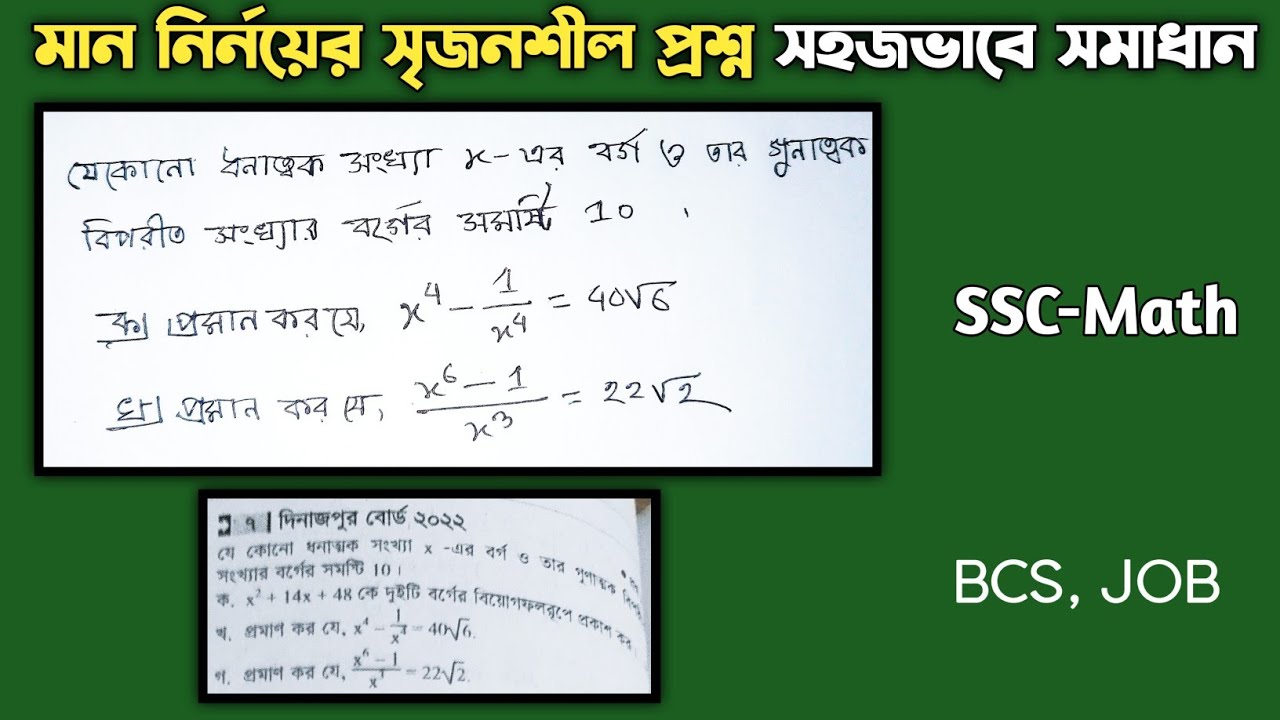 মান নির্নয়ের সৃজনশীল প্রশ্ন সহজভাবে সমাধান
যেকোনো ধনাত্বক সংখ্যা x-এর বর্গ ও তার গুনাত্বক
বিপরীত সংখ্যার বর্গের সমষ্টি 10 ,
ক) প্রমান কর যে, x⁴ - 1/x⁴ = 40√6
খ) প্রমান কর যে, x⁶ - 1/x³ = 22√2
SSC-Math
৭ | দিনাজপুর বোর্ড ২০২২
যে কোনো ধনাত্মক সংখ্যা x -এর বর্গ ও তার গুণাত্মক
সংখ্যার বর্গের সমষ্টি 10।
ক. x² + 14x + 48 কে দুইটি বর্গের বিয়োগফলরূপে প্রকাশ কর
খ. প্রমাণ কর যে, x⁴ - 1/x⁴ = 40√6.
গ. প্রমাণ কর যে, x⁶ - 1/x³ = 22√2.
BCS, JOB